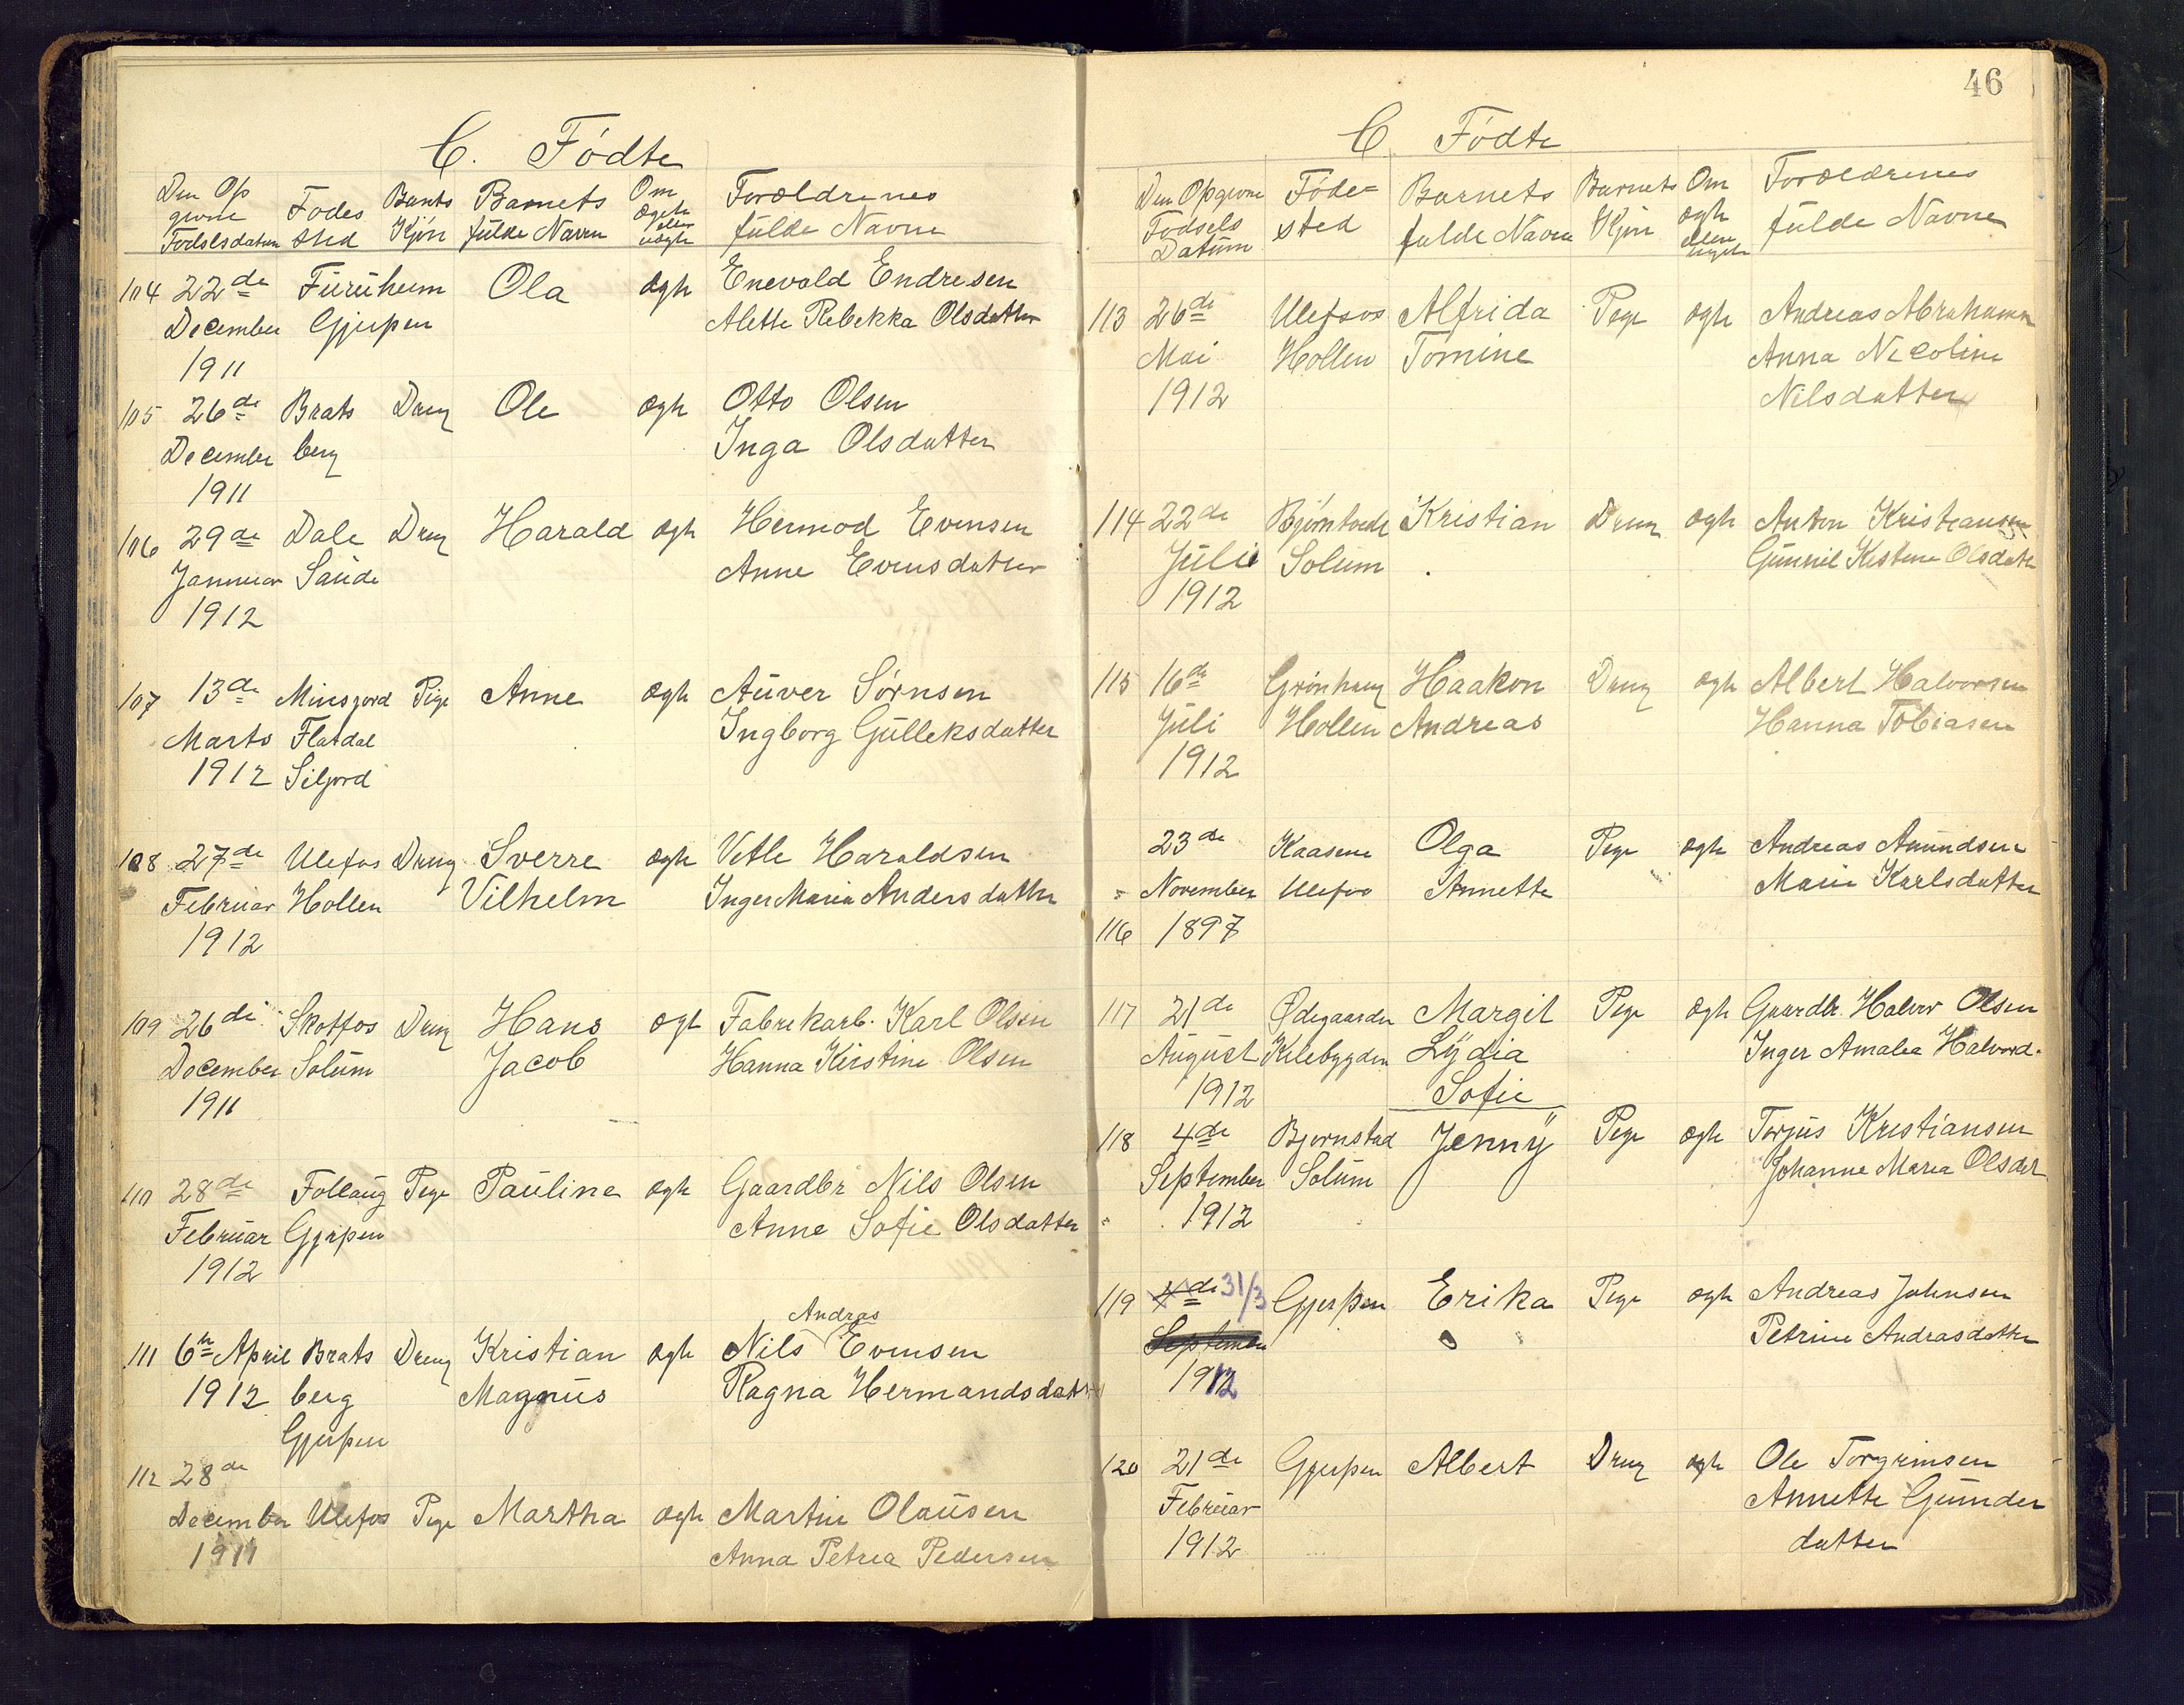 C. Fødte
Den Op Fødes Barnets Barnets Om Forældrenes
givne sted Kjøn fulde Navn ægte fulde Navne
Fødselsdatum eller uægte
104 22de Furuheim Ola ægte Enevald Endresen
December Gjerpen Alette Rebekka Olsdatter
1911
105 26de Brats Dreng Ole ægte Otto Olsen
December berg Inga Olsdatter
1911
106 29de Dale Dreng Harald ægte Hermod Evensen
Januar Saude Anne Evensdatter
1912
107 13de Pige Anne ægte Auver Sørnsen
Marts Flatdal Ingborg Gulleksdatter
1912 Siljord
108 27de Ulefos Dreng Sverre ægte Vetle Haraldsen
Februar Hollen Vilhelm Inger Maria Andersdatter
1912
109 26de Skotfos Dreng Hans ægt Fabrikarb. Karl Olsen
December Solum Jacob Hanna Kirstine Olsen
1911
110 28de Follaug Pige Paulina ægte Gaardbr Nils Olsen
Februar Gjerpen Anne Sofie Olsdatter
1912
Andras
111 6te April Brats Dreng Kristian ægte Nils Evensen
1912 berg Magnus Ragna Hermandsdatr
Gjerpen
112 28de
December Ulefos Pige Martha ægte Martin Olausen
1911 Anna Petrea Pedersen
46
C Fødte
Den Opgivne Føde= Barnets Barnets Om Forældrenes
Fødsels sted fulde Navn Kjøn ægte fulde Navne
Datum eller uægte
113 26de Ulefsos Alfrida Pige ægte Andreas Abrahamsn
Mai Hollen Tomine Anna Nicoline
1912 Nilsdatter
114 22de Bjørntvedt Kristian Dreng ægte Anton Kristiansen
Juli Solum Gunnil Kistine Olsdatr
1912
115 16de Grønhaug Haakon Dreng ægte Albert Halvorsen
Juli Hollen Andreas Hanna Tobiasen
1912
23de Kaasene Olga Pige ægte Andreas Amundsen
" November Ulefos Annette Marie Karlsdatter
116 1897
117 21de Ødegaarden Margit Pige ægte Gaardbr. Halvor Olsen
August Kilebygden Lydia Inger Amalea Halvord.
1912 Sofie
118 4de Bjørnstad Jenny Pige ægte Torjus Kristiansen
September Solum Johanne Maria Olsdat
" 1912
119 4de 31/3 Gjerpen Erika Pige ægte Andreas Johnsen
September Petrine Andrasdatter
1912
120 21de Gjerpen Albert Dreng ægte Ole Torgrimsen
Februar Annette Gunder
1912 datter